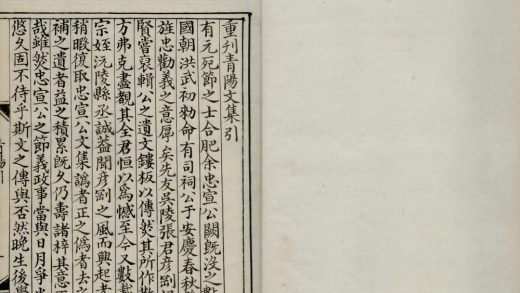 重刊青陽文集引
有元死節之士合肥余忠宣公闕既沒之
國朝洪武初勑命有司祠公于安慶春秋
旌忠勸義之意厚矣先友吳陵張君彥剛
賢嘗裒輯公之遺文鏤板以傳然其所作
方弗克盡覩其全君恒以為憾至今又數
宗姪沅陵縣丞誠益聞彥剛之風而興起者
稍暇復取忠宣公文集譌者正之偽者去
補之遺者益之積累既久仍壽諸梓其意
哉雖然忠宣公之節義政事當與日月爭
悠久固不待乎斯文之傳與否然晚生後